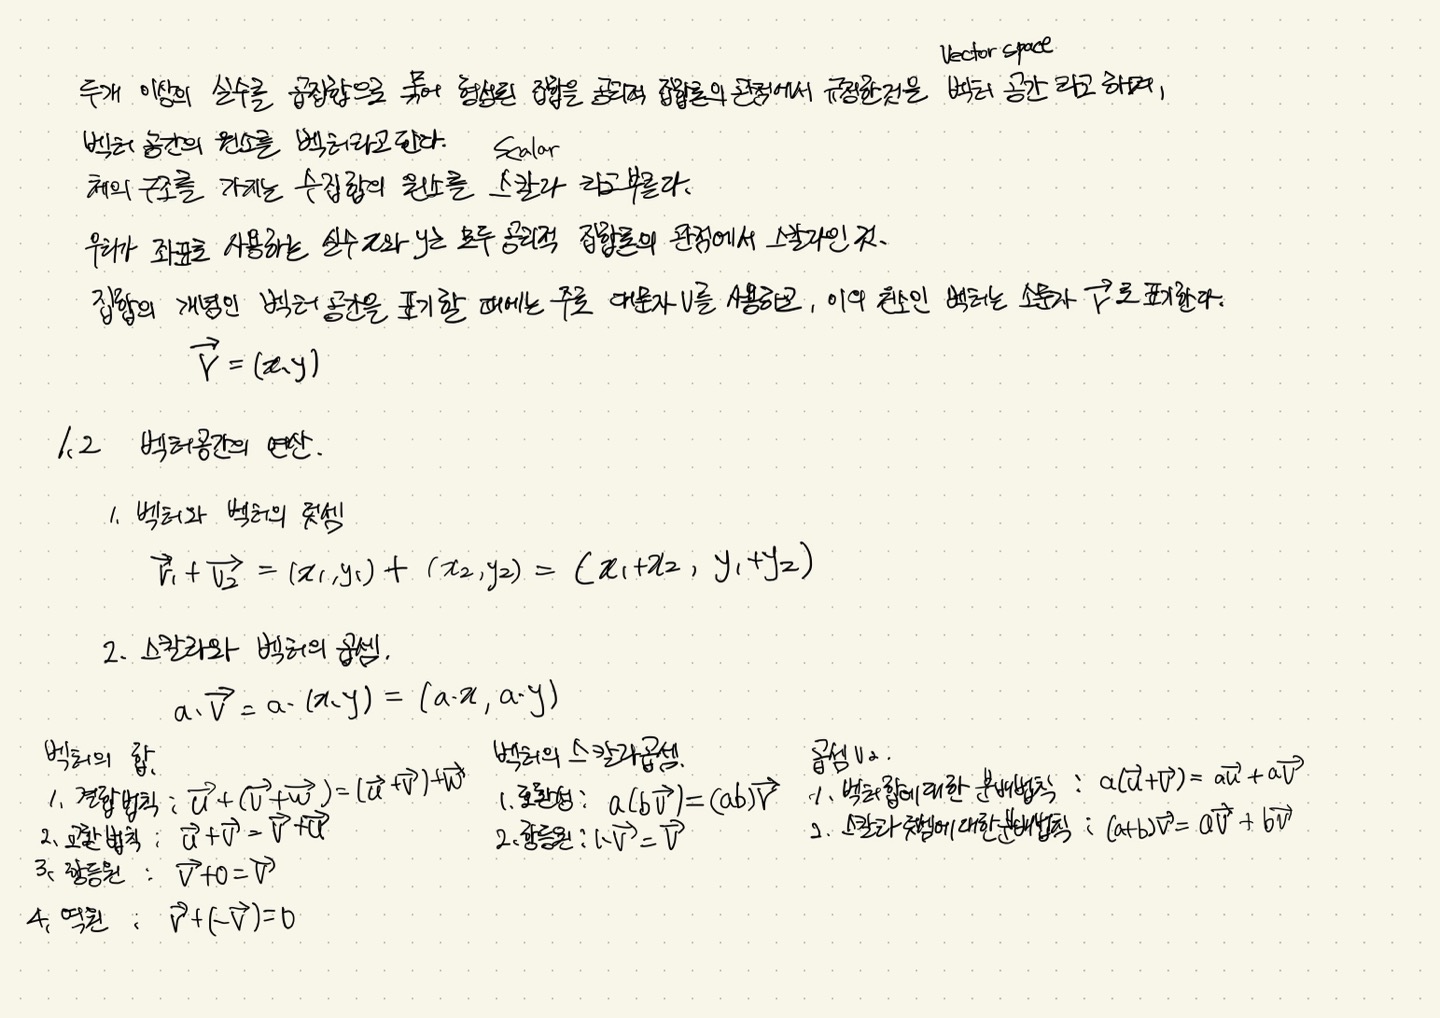 Vector space
두개 이상의 실수를 곱집합으로 묶어 형성된 집합을 공리적 집합론의 관점에서 규정한것을 벡터 공간 라고 하며,
벡터 공간의 원소를 벡터라고 한다.
Scalar
체의 구조를 가지는 수집합의 원소를 스칼라 라고 부른다.
우리가 좌표로 사용하는 실수 x와 y는 모두 공리적 집합론의 관점에서 스칼라인 것.
집합의 개념인 벡터 공간을 표기할 때에는 주로 대문자 V를 사용하고, 이의 원소인 벡터는 소문자 v⃗로 표기한다.
v⃗ = (x,y)
1.2 벡터공간의 연산.
1. 벡터와 벡터의 덧셈
v⃗₁ + v⃗₂ = (x₁,y₁) + (x₂,y₂) = (x₁+x₂, y₁+y₂)
2. 스칼라와 벡터의 곱셈.
a·v⃗ = a·(x,y) = (a·x, a·y)
벡터의 합.
1. 결합법칙 : u⃗+(v⃗+w⃗)=(u⃗+v⃗)+w⃗
2. 교환법칙 : u⃗+v⃗=v⃗+u⃗
3. 항등원 : v⃗+0=v⃗
4. 역원 : v⃗+(-v⃗)=0
벡터의 스칼라곱셈.
1. 호환성 : a(bv⃗)=(ab)v⃗
2. 항등원 : 1·v⃗=v⃗
곱셈 V2.
1. 벡터합에 대한 분배법칙 : a(u⃗+v⃗)=au⃗+av⃗
2. 스칼라 덧셈에 대한 분배법칙 : (a+b)v⃗=av⃗+bv⃗